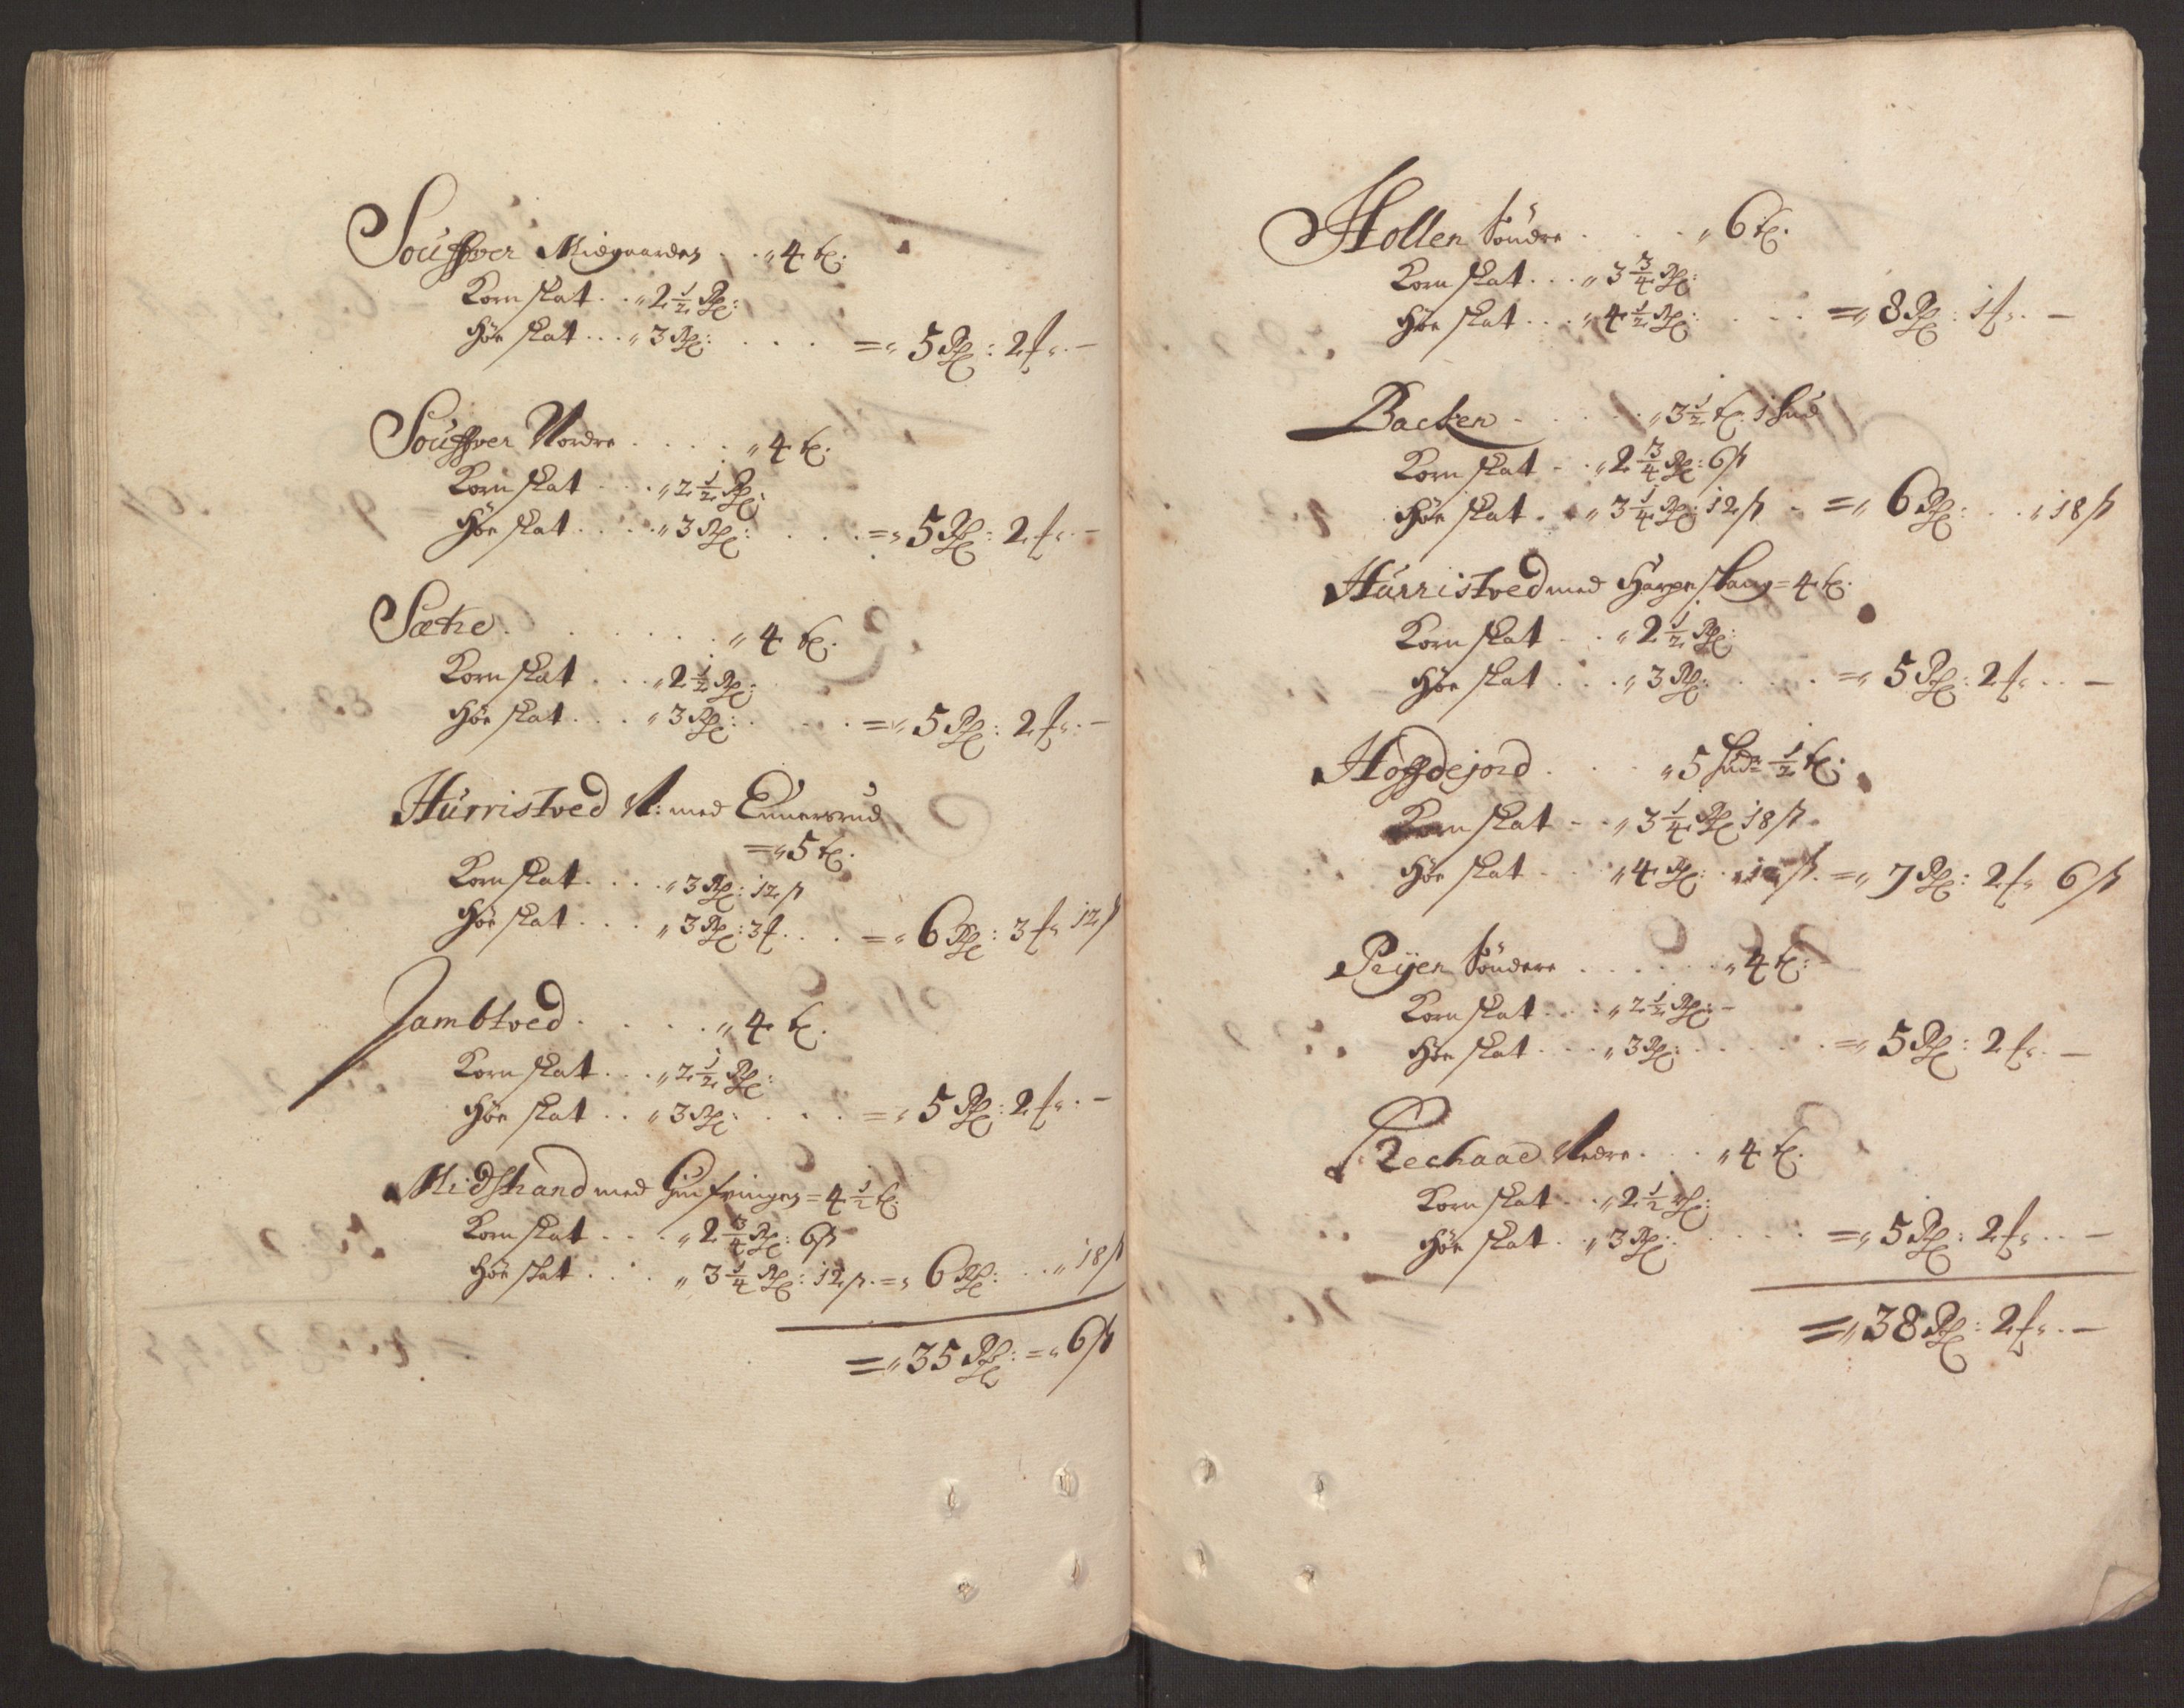 Souffver Midgaarden . . „ 4 t.
Kornskat . . „ 2 1/2 Rd:
Høe skat . . . „ 3 Rd: . . . = „ 5 Rd: 2 f. –
Souffver Nordre . . . . „ 4 t.
Kornskat . . . „ 2 1/2 Rd:
Høe skat . . . . „ 3 Rd: . . . = „ 5 Rd: 2 f. –
Sætre . . . . . . . „ 4 t.
Kornskat . . . „ 2 1/2 Rd:
Høe skat . . . „ 3 Rd: . . . . = „ 5 Rd: 2 f. –
Hurristved N: med Ennersrud
= „ 5 t.
Kornskat . . . . „ 3 Rd: 12 s
Høe skat . . . „ 3 Rd: 3 f . . . = „ 6 Rd: 3 f. 12 s
Jambtved . . . . . „ 4 t.
Kornskat . . . „ 2 1/2 Rd:
Høe skat . . „ 3 Rd: . . . . = „ 5 Rd: 2 f. –
Midstrand med = 4 1/2 t.
Kornskat . . . „ 2 3/4 Rd: 6 s
Høe skat . . . . „ 3 1/4 Rd: 12 s. = „ 6 Rd: . . „ 18 s
= „ 35 Rd: = „ 6 s
Hollen Søndre . . . „ 6 t.
Kornskat . . . „ 3 3/4 Rd:
Høe skat . . . „ 4 1/2 Rd: . . . = „ 8 Rd: 1 f. –
Backen . . . . . „ 3 1/2 t. 1 hud
Kornskat - . „ 2 3/4 Rd: 6 s
Høe skat . . „ 3 1/4 Rd: 12 s . = „ 6 Rd: . . „ 18 s
Hurristved med Harpenskaug = 4 t.
Kornskat . . . „ 2 1/2 Rd:
Høe skat . . . „ 3 Rd: . . . . = „ 5 Rd: 2 f. . –
Hoffdejord . . . . „ 5 hud 1/2 t.
Kornskat - . „ 3 1/4 Rd 18 s.
Høe skat . . . „ 4 Rd: . „ s. = „ 7 Rd: 2 f. 6 s
Peyen Søndere . . . . . . „ 4 t. –
Kornskat . . . „ 2 1/2 Rd: –
Høe skat . . . „ 3 Rd: . . . . . = „ 5 Rd: 2 f. . –
Rechaae Nedre . . . „ 4 t.
Kornskat . . . „ 2 1/2 Rd:
Høe skat . . „ 3 Rd: . . . . . = „ 5 Rd: 2 f. . –
= „ 38 Rd: 2 f. . –